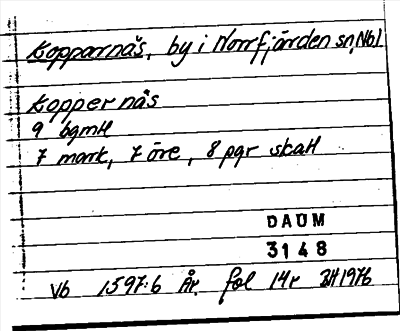 Kopparnäs, by i Norrfjärden sn, Nbl
Koppernäs
9 bgmtl
7 mark, 7 öre, 8 pgr skatt
DAUM
3148
Vb 1597:6 År. fol 14r BH 1976